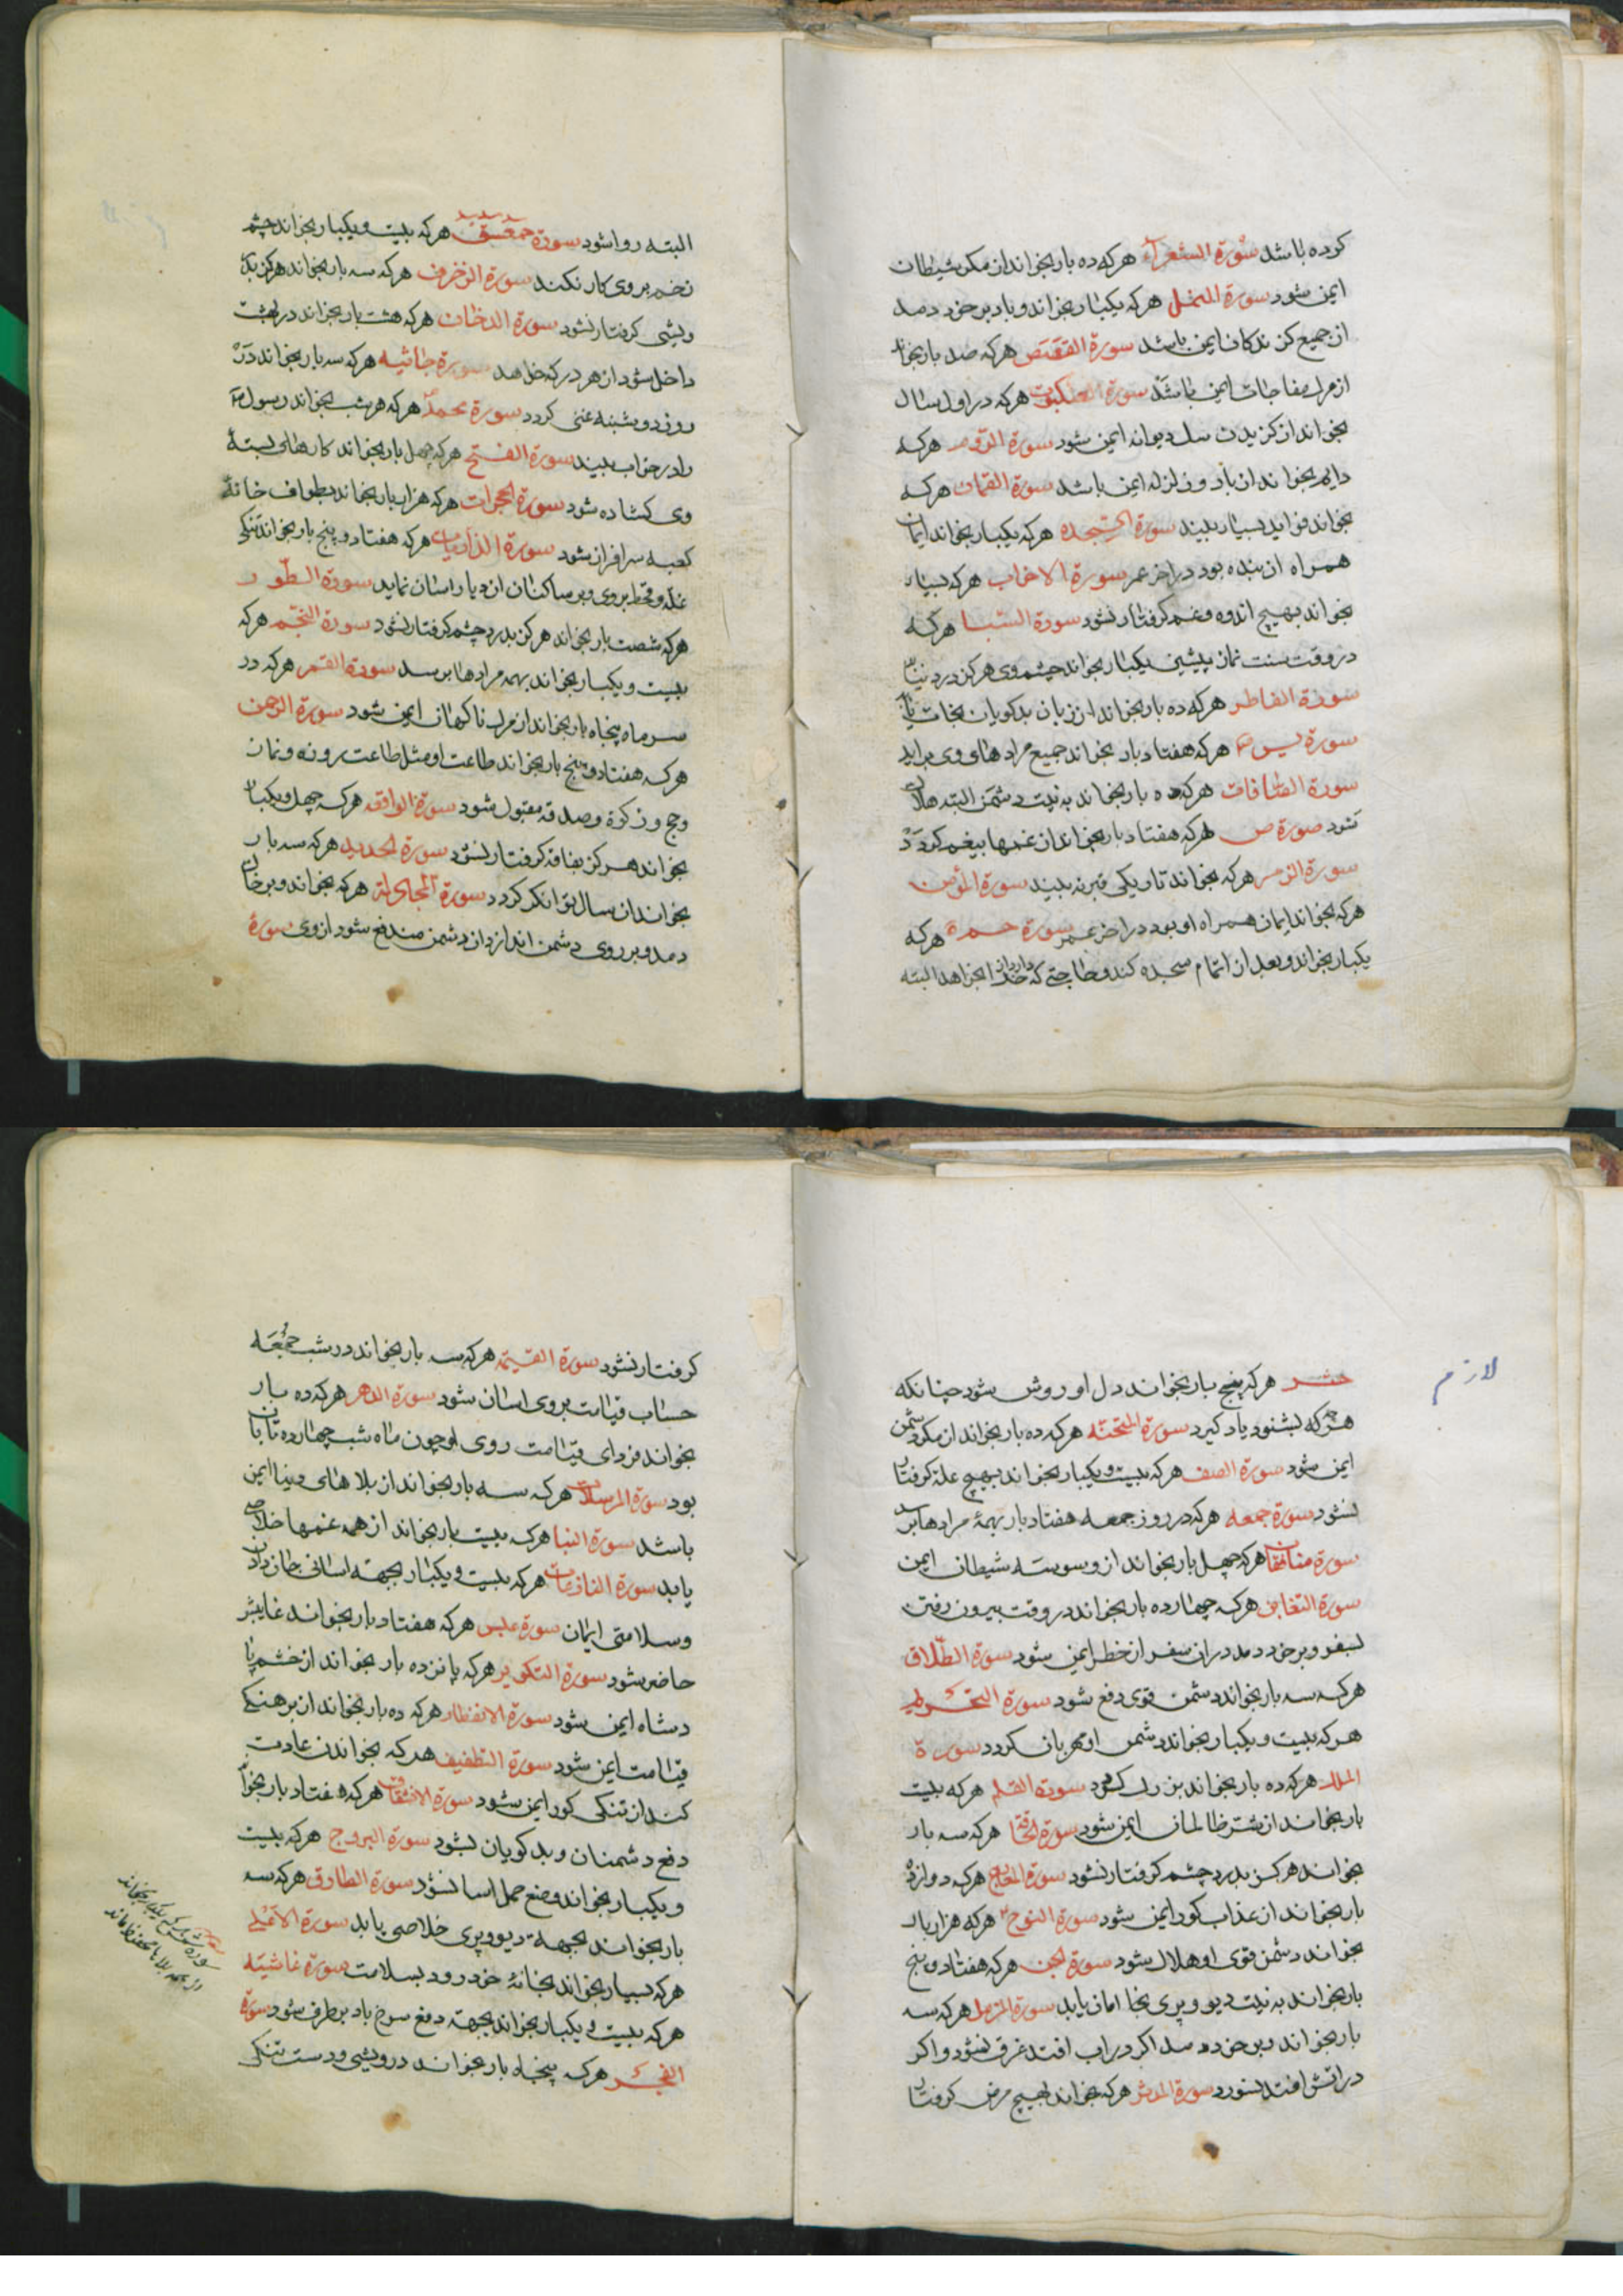 کرده باشد سورة الشعرآء هرکه ده بار بخواند از مکر شیطان
ایمن شود سورة النمل هرکه یکبار بخواند و باد بر خود دمد
از جمیع کزندکان ایمن باشد سورة القصص هرکه صد بار بخواند
از مرک مفاجات ایمن باشد سورة العنکبوت هرکه در اول سال
بخواند از کزیدن سک دیوانه ایمن شود سورة الروم هرکه
دایم بخواند از باد و زلزله ایمن باشد سورة القمان هرکه
بخواند فواید بسیار بیند سورة السجده هرکه یکبار بخواند ایمان
همراه آن بنده بود در اخر عمر سورة الاحزاب هرکه بسیار
بخواند بهیچ اندوه و غم کرفتار نشود سورة السبا هرکه
در وقت سنت نماز پیشین یکبار بخواند چشم وی هرکز درد نبیند
سورة الفاطر هرکه ده بار بخواند از زبان بدکویان نجات یابد
سورة یس هرکه هفتاد بار بخواند جمیع مرادهای وی براید
سورة الصافات هرکه ده بار بخواند به نیت دشمن البته هلاک
شود صورة ص هرکه هفتاد بار بخواند از غمها بیغم کردد
سورة الزمر هرکه بخواند تاریکی قبر نه بیند سورة المؤمن
هرکه بخواند ایمان همراه او بود در اخر عمر سورة حمـ هرکه
یکبار بخواند و بعد از اتمام سجده کند و حاجتی که دارد از خدا بخواهد البته
البته روا شود سورة حمعسق هرکه بیست و یکبار بخواند چشم
زخم بر وی کار نکند سورة الزخرف هرکه سه بار بخواند هرکز بتنک
ویشی کرفتار نشود سورة الدخان هرکه هشت بار بخواند در بهشت
داخل شود از هر در که خواهد سورة جاثیه هرکه سه بار بخواند در
روز دوشنبه غنی کردد سورة محمد هرکه هر شب بخواند رسول
را در خواب بیند سورة الفتح هرکه چهل بار بخواند کارهای بستۀ
وی کشاده شود سورة الحجرات هرکه هزار بار بخواند بطواف خانۀ
کعبه سرافراز شود سورة الذاریات هرکه هفتاد و پنج بار بخواند تنکی
غله و قحط بر وی و بر ساکنان ان دیار اسان نماید سورة الطور
هرکه شصت بار بخواند هرکز بدرد چشم کرفتار نشود سورة النجم هرکه
بیست و یکبار بخواند بهمه مرادها برسد سورة القمر هرکه در
سر ماه پنجاه بار بخواند از مرک ناکهان ایمن شود سورة الرحمن
هرکه هفتاد و پنج بار بخواند طاعت او مثل طاعت روزه و نماز
و حج و زکوة و صدقه مقبول شود سورة الواقعه هرکه چهل و یکبار
بخواند هرکز بفاقه کرفتار نشود سورة الحدید هرکه سه بار
بخواند ان سال توانکر کردد سورة المجادلة هرکه بخواند و بر خاک
دمد و بر روی دشمن اندازد ان دشمن مندفع شود از وی سورۀ
لازم
حشر هرکه پنج بار بخواند دل او روشن شود چنانکه
هرچه که بشنود یاد کیرد سورة الممتحنه هرکه ده بار بخواند از مکر دشمن
ایمن شود سورة الصف هرکه بیست و یکبار بخواند بهیچ علة کرفتار
نشود سورة جمعه هرکه در روز جمعه هفتاد بار بهمۀ مرادها برسد
سورة منافقان هرکه چهل بار بخواند از وسوسه شیطان ایمن
سورة التغابن هرکه چهارده بار بخواند در وقت بیرون رفتن
بسفر و بر خود دمد در ان سفر از خطر ایمن شود سورة الطلاق
هرکه سه بار بخواند دشمن قوی دفع شود سورة التحریم
هرکه بیست و یکبار بخواند دشمن او مهربان کردد سورة
الملک هرکه ده بار بخواند بزرک شود سورة القلم هرکه بیست
بار بخواند از شر ظالمان ایمن شود سورة الحاقة هرکه سه بار
بخواند هرکز بدرد چشم کرفتار نشود سورة المعارج هرکه دوازده
بار بخواند از عذاب کور ایمن شود سورة النوح هرکه هزار بار
بخواند دشمن قوی او هلاک شود سورة الجن هرکه هفتاد و پنج
بار بخواند به نیت دیو و پری بخا امان یابد سورة المزمل هرکه سه
بار بخواند و بر خود دمد اکر در اب افتد غرق نشود و اکر
در اتش افتد نسوزد سورة المدثر هرکه بخواند بهیچ مرض کرفتار
کرفتار نشود سورة القیمة هرکه سه بار بخواند در شب جمعه
حساب قیامت بر وی اسان شود سورة الدهر هرکه ده بار
بخواند فردای قیامت روی او چون ماه شب چهارده تابان
بود سورة المرسلات هرکه سه بار بخواند از بلاهای دنیا ایمن
باشد سورة النبا هرکه بیست بار بخواند از همه غمها خلاص
یابد سورة النازعات هرکه بیست و یکبار بجهة اسانی جان دادن
و سلامتی ایمان سورة عبس هرکه هفتاد بار بخواند غایبش
حاضر شود سورة التکویر هرکه پانزده بار بخواند از خشم پا
دشاه ایمن شود سورة الانفطار هرکه ده بار بخواند از برهنکی
قیامت ایمن شود سورة التطفیف هرکه بخواندن عادت
کند از تنکی کور ایمن شود سورة الانشقاق هرکه هفتاد بار بخواند
دفع دشمنان و بدکویان بشود سورة البروج هرکه بیست
و یکبار بخواند وضع حمل اسا نشود سورة الطارق هرکه سه
بار بخواند بجهة دیو و پری خلاصی یابد سورة الاعلی
هرکه بسیار بخواند بخانۀ خود رود بسلامت سورة غاشیته
هرکه بیست و یکبار بخواند بجهة دفع سرخ باد برطرف شود سورة
الفجر هرکه پنجاه بار بخواند درویشی و دست تنکی